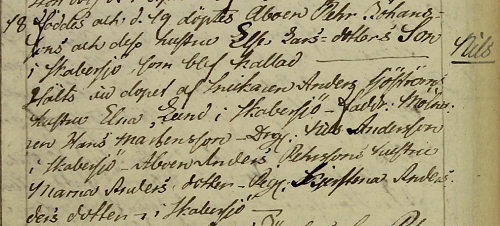 18 föddes och d. 19 döptes Åboen Pehr Johans-
sons och dess hustru Else Lars-dotters Son
i Skabersjö, som blef kallad — Nils
Holts vid dopet af Snikaren Anders Sjöströms
hustru Elna Lund i Skabersjö – Faddr. Mölna-
ren Hans Mårtensson – Drg. Nils Andersson
i Skabersjö – Åboen Anders Pehrssons hustru
Marna Anders dotter – Pig. Kjerstena Anders
ders dotter – i Skabersjö –